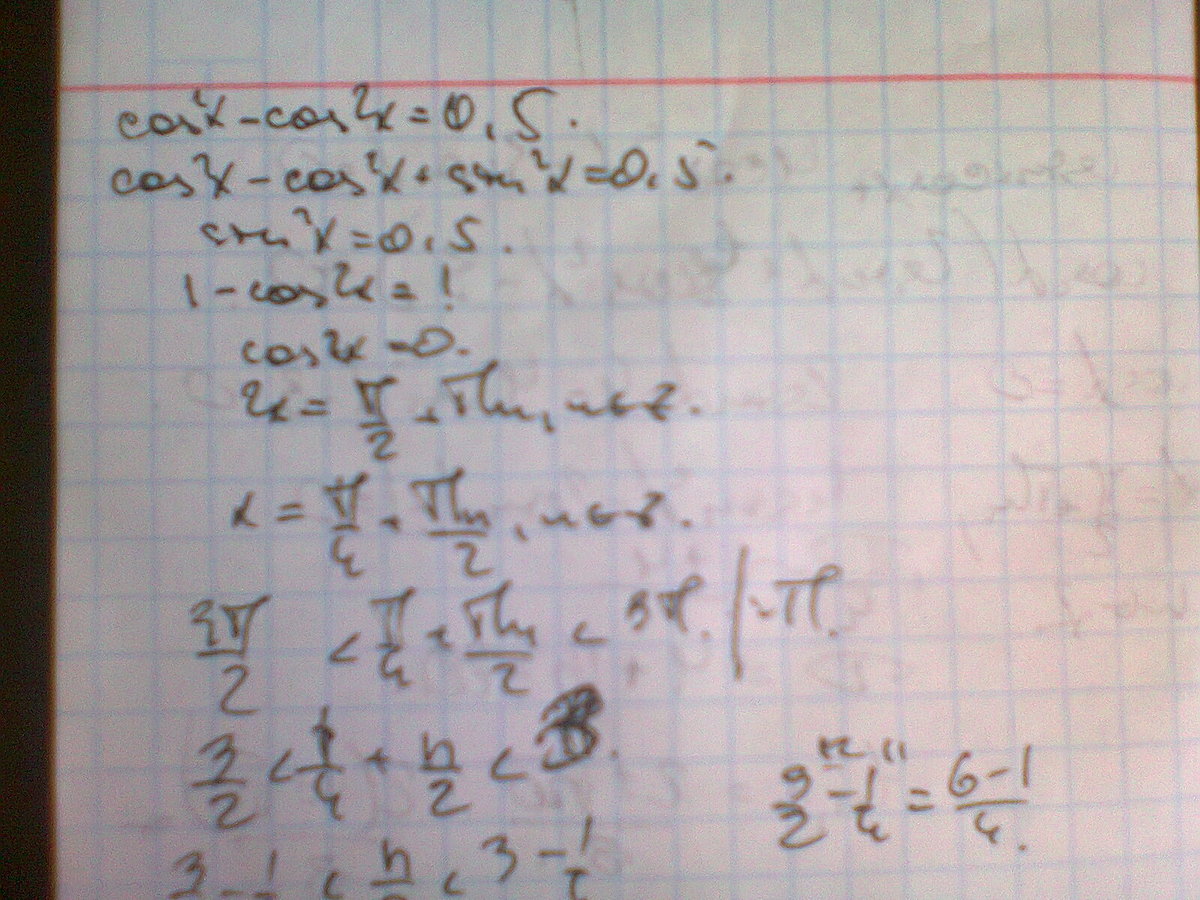 cos²x - cos2x = 0,5.
cos²x - cos²x + sin²x = 0,5.
sin²x = 0,5.
1 - cos2x = 1
cos2x = 0.
2x = π/2 + πn, n∈Z.
x = π/4 + πn/2, n∈Z.
3π/2 < π/4 + πn/2 < 3π. | : π.
3/2 < 1/4 + n/2 < 3.
3/2 - 1/4 = (6-1)/4.
3 - 1 < n < 3 - 1